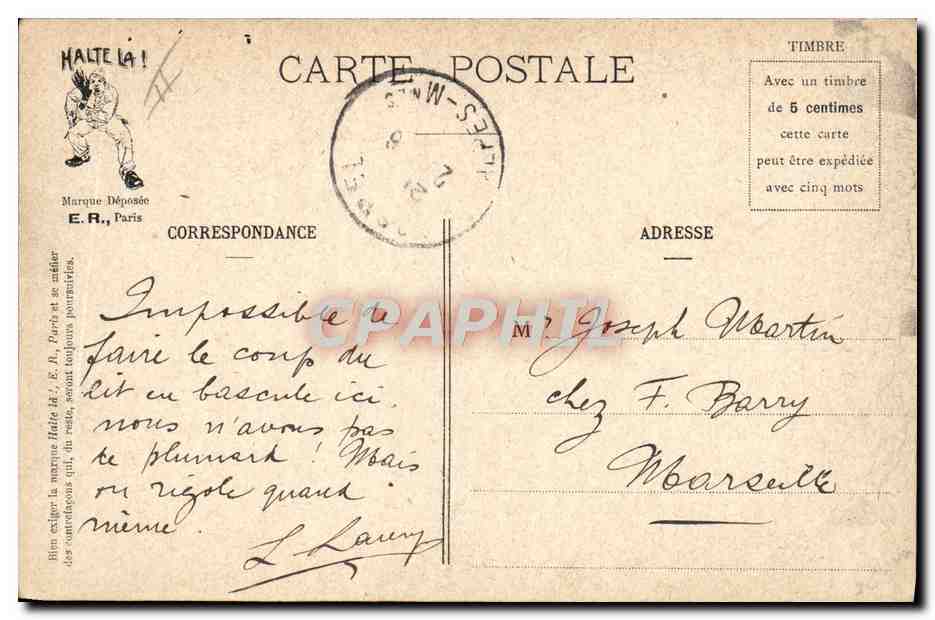 HALTE LA !
Marque Déposée
E. R., Paris
CARTE POSTALE
TIMBRE
Avec un timbre
de 5 centimes
cette carte
peut être expédiée
avec cinq mots
ALPES-MMES
22
8
CORRESPONDANCE
ADRESSE
Bien exiger la marque Halte là !, E. R., Paris et se méfier
des contrefaçons qui, du reste, seront toujours poursuivies.
Impossible de
faire le coup du
lit en bascule ici,
nous n'avons pas
de plumard ! Mais
on rigole quand
même.
L
Mr. Joseph Martin
chez F. Barry
Marseille
CPAPHIL